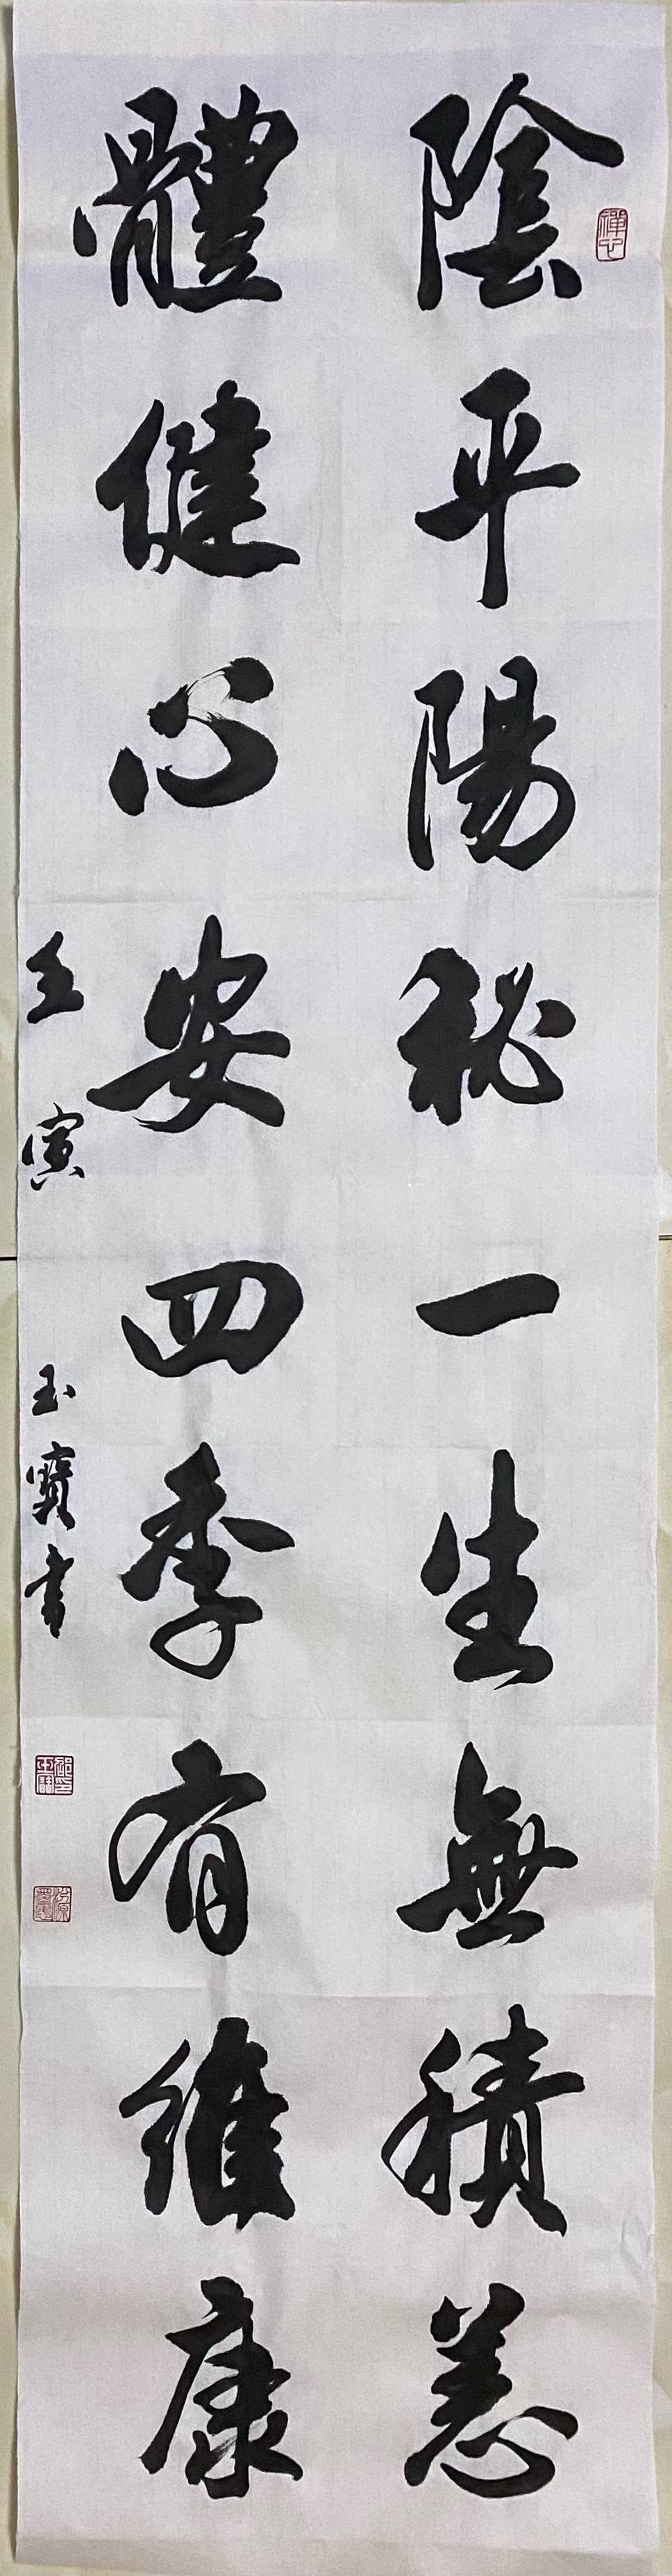 陰平陽秘一生無積恙
體健心安四季有維康
壬寅 玉寶書
禪心